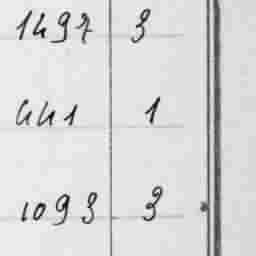 1497 3
441 1
1093 3